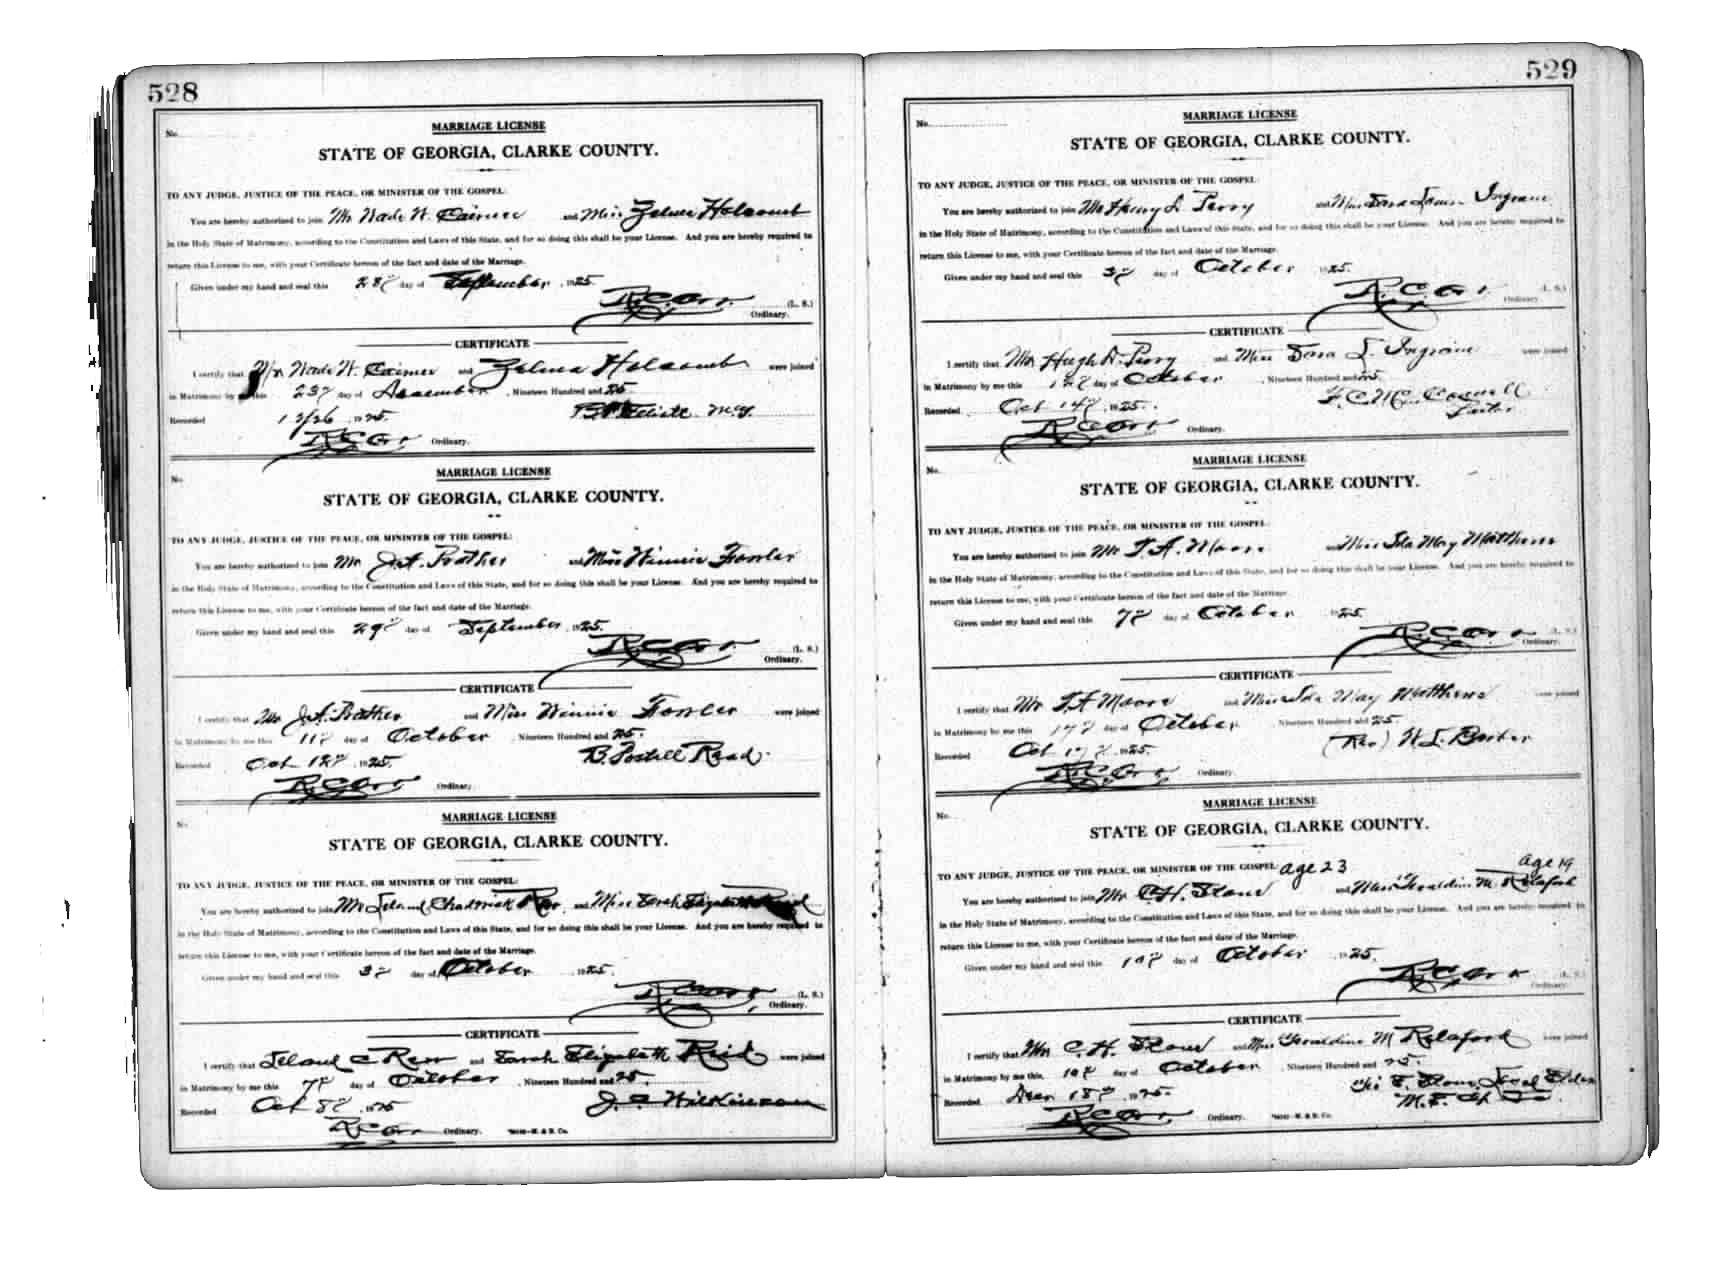 528
No.
MARRIAGE LICENSE
STATE OF GEORGIA, CLARKE COUNTY.
TO ANY JUDGE, JUSTICE OF THE PEACE, OR MINISTER OF THE GOSPEL:
You are hereby authorized to join Mr Wade W. and Miss Zelma Holcomb
in the Holy State of Matrimony, according to the Constitution and Laws of this State, and for so doing this shall be your License. And you are hereby required to
return this License to me, with your Certificate hereon of the fact and date of the Marriage.
Given under my hand and seal this 28 day of September, 1925.
R.C. Orr (L. S.)
Ordinary.
CERTIFICATE
I certify that Mr Wade W. and Zelma Holcomb were joined
in Matrimony by me this 23 day of December, Nineteen Hundred and 25
Recorded 12/26 1925.
R.C. Orr Ordinary.
No.
MARRIAGE LICENSE
STATE OF GEORGIA, CLARKE COUNTY.
TO ANY JUDGE, JUSTICE OF THE PEACE, OR MINISTER OF THE GOSPEL:
You are hereby authorized to join Mr J.A. Prather and Miss Winnie Fowler
in the Holy State of Matrimony, according to the Constitution and Laws of this State, and for so doing this shall be your License. And you are hereby required to
return this License to me, with your Certificate hereon of the fact and date of the Marriage.
Given under my hand and seal this 29 day of September, 1925.
R.C. Orr (L. S.)
Ordinary.
CERTIFICATE
I certify that Mr J.A. Prather and Miss Winnie Fowler were joined
in Matrimony by me this 11 day of October, Nineteen Hundred and 25.
Recorded Oct 12 1925. B. Postell Read
R.C. Orr Ordinary.
No.
MARRIAGE LICENSE
STATE OF GEORGIA, CLARKE COUNTY.
TO ANY JUDGE, JUSTICE OF THE PEACE, OR MINISTER OF THE GOSPEL:
You are hereby authorized to join Mr Leland Chadwick and Miss Sarah Elizabeth Reid
in the Holy State of Matrimony, according to the Constitution and Laws of this State, and for so doing this shall be your License. And you are hereby required to
return this License to me, with your Certificate hereon of the fact and date of the Marriage.
Given under my hand and seal this 3 day of October, 1925.
R.C. Orr (L. S.)
Ordinary.
CERTIFICATE
I certify that Leland C and Sarah Elizabeth Reid were joined
in Matrimony by me this 7 day of October, Nineteen Hundred and 25.
Recorded Oct 8 1925 J. C. Wilkinson
R.C. Orr Ordinary.
529
No.
MARRIAGE LICENSE
STATE OF GEORGIA, CLARKE COUNTY.
TO ANY JUDGE, JUSTICE OF THE PEACE, OR MINISTER OF THE GOSPEL:
You are hereby authorized to join Mr Henry L. Perry and Miss Ingram
in the Holy State of Matrimony, according to the Constitution and Laws of this State, and for so doing this shall be your License. And you are hereby required to
return this License to me, with your Certificate hereon of the fact and date of the Marriage.
Given under my hand and seal this 3 day of October 1925.
R.C. Orr (L. S.)
Ordinary
CERTIFICATE
I certify that Mr Hugh Perry and Miss L. Ingram were joined
in Matrimony by me this day of October, Nineteen Hundred and 25.
Recorded Oct 14 1925.
R.C. Orr Ordinary.
No.
MARRIAGE LICENSE
STATE OF GEORGIA, CLARKE COUNTY.
TO ANY JUDGE, JUSTICE OF THE PEACE, OR MINISTER OF THE GOSPEL:
You are hereby authorized to join Mr T.A. Moore and Miss Ida May Matthews
in the Holy State of Matrimony, according to the Constitution and Laws of this State, and for so doing this shall be your License. And you are hereby required to
return this License to me, with your Certificate hereon of the fact and date of the Marriage.
Given under my hand and seal this 7 day of October 1925.
R.C. Orr (L. S.)
Ordinary.
CERTIFICATE
I certify that Mr T.A Moore and Miss Ida May Matthews were joined
in Matrimony by me this 17 day of October, Nineteen Hundred and 25.
Recorded Oct 17 1925. (Rev)
R.C. Orr Ordinary.
No.
MARRIAGE LICENSE
STATE OF GEORGIA, CLARKE COUNTY.
TO ANY JUDGE, JUSTICE OF THE PEACE, OR MINISTER OF THE GOSPEL: age 23 age 19
You are hereby authorized to join Mr C.H. Stone and Miss Geraldine M. Relaford
in the Holy State of Matrimony, according to the Constitution and Laws of this State, and for so doing this shall be your License. And you are hereby required to
return this License to me, with your Certificate hereon of the fact and date of the Marriage.
Given under my hand and seal this 10 day of October 1925.
R.C. Orr (L. S.)
Ordinary.
CERTIFICATE
I certify that Mr C.H. Stone and Miss Geraldine M Relaford were joined
in Matrimony by me this 10 day of October, Nineteen Hundred and 25.
Recorded 18 1925. Stone, Local Elder
R.C. Orr Ordinary. M.E. Ch